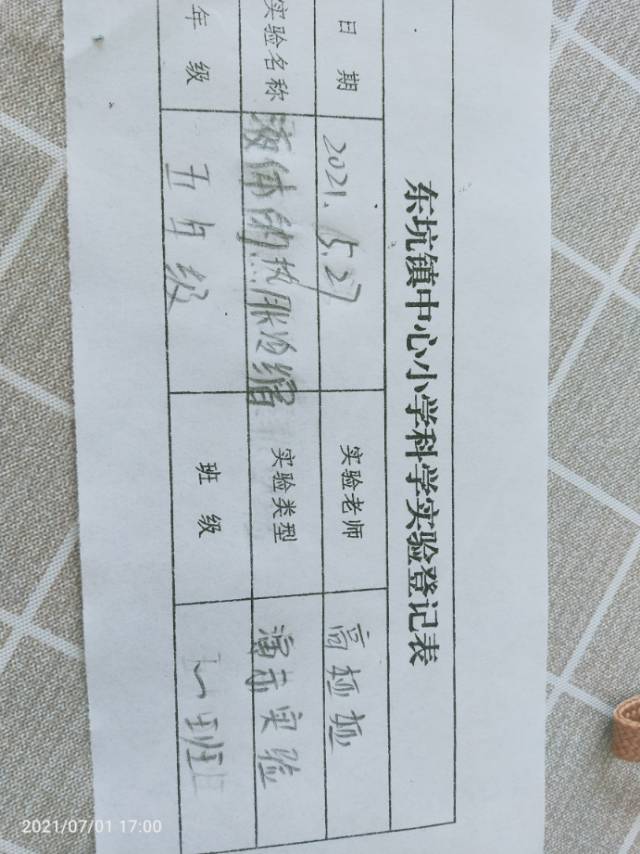 东坑镇中心小学科学实验登记表
日期 2021.5.27 实验老师 高
实验名称 液体的热胀冷缩 实验类型 演示实验
年级 五年级 班级 班
2021/07/01 17:00